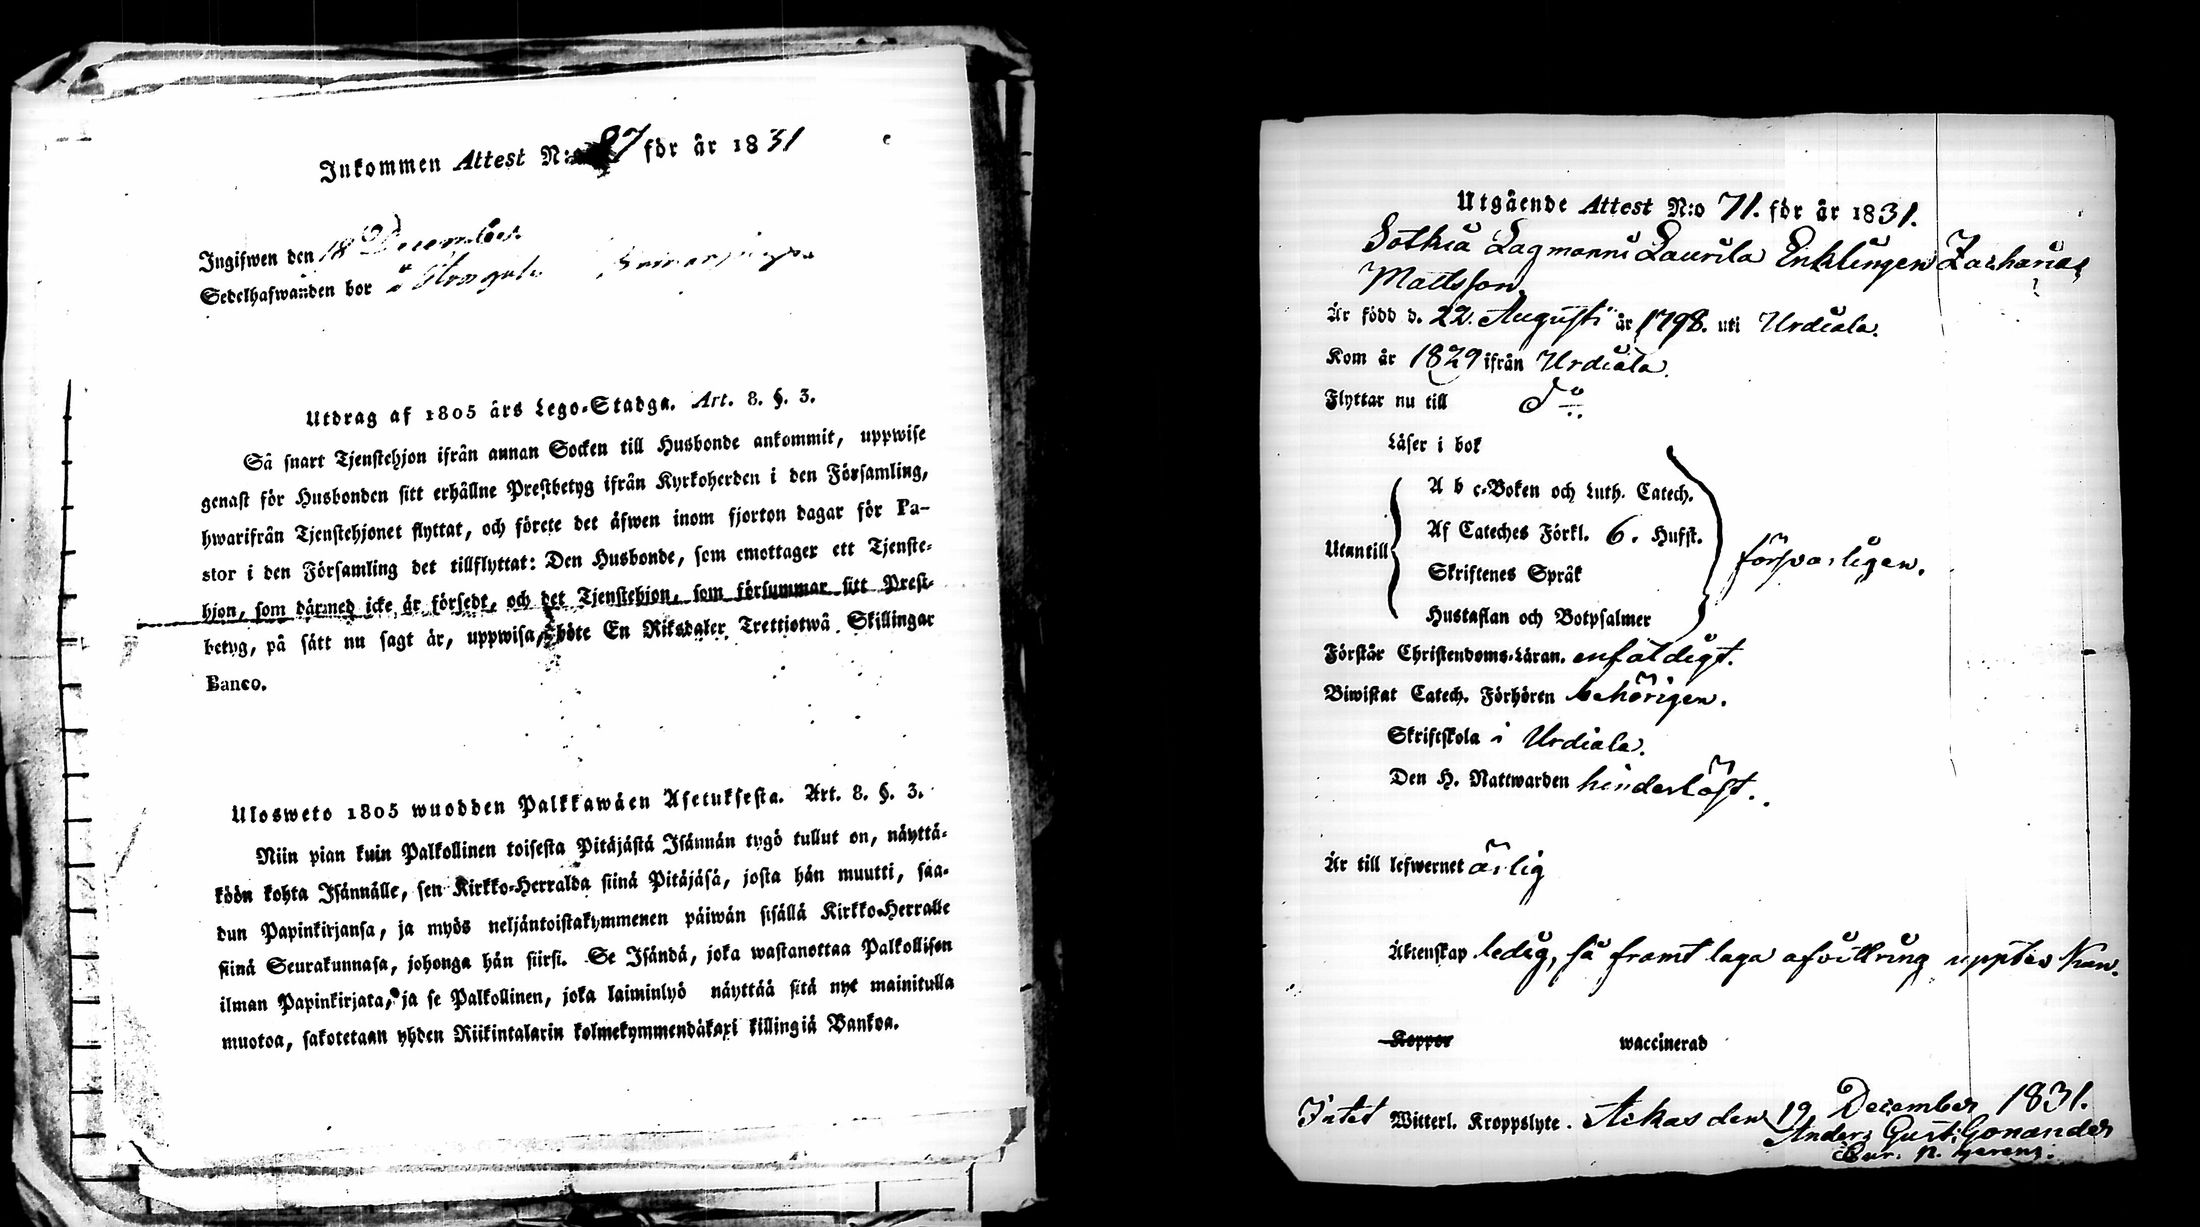 Inkommen Attest N:o 87 för år 1831
Ingifwen den 18 December
Sedelhafwanden bor i
Utdrag af 1805 års Lego-Stadga. Art. 8. §. 3.
Så snart Tjenstehjon ifrån annan Socken till Husbonde ankommit, uppwise
genast för Husbonden sitt erhållne Prestbetyg ifrån Kyrkoherden i den Församling,
hwarifrån Tjenstehjonet flyttat, och förete det äfwen inom fjorton dagar för Pa-
stor i den Församling det tillflyttat: Den Husbonde, som emottager ett Tjenste-
hjon, som därmed icke är försedt, och det Tjenstehjon, som försummar sitt Prest-
betyg, på sätt nu sagt är, uppwisa, böte En Riksdaler Trettiotwå Skillingar
Banco.
Ulosweto 1805 wuodden Palkkawäen Asetuksesta. Art. 8. §. 3.
Niin pian kuin Palkollinen toisesta Pitäjästä Isännän tygö tullut on, näyttä-
köön kohta Isännälle, sen Kirkko-Herralda siinä Pitäjäsä, josta hän muutti, saa-
dun Papinkirjansa, ja myös neljäntoistakymmenen päiwän sisällä Kirkko-Herralle
siinä Seurakunnasa, johonga hän siirsi. Se Isändä, joka wastanottaa Palkollisen
ilman Papinkirjata, ja se Palkollinen, joka laiminlyö näyttää sitä nyt mainitulla
muotoa, sakotetaan yhden Riikintalarin kolmekymmendäkaxi killingiä Bankoa.
Utgående Attest N:o 71. för år 1831.
Sotkia Lagmanni Laurila Enklingen Zacharias
Mattsson
Är född d. 22. Augusti år 1798. uti Urdiala.
Kom år 1829 ifrån Urdiala.
Flyttar nu till do
Läser i bok
A b c-Boken och Luth. Catech.
Utantill Af Cateches Förkl. 6. Hufst. försvarligen.
Skriftenes Språk
Hustaflan och Botpsalmer
Förstår Christendoms-Läran. enfaldigt.
Biwistat Catech. Förhören behörigen.
Skriftskola i Urdiala.
Den H. Nattwarden hinderlöst.
Är till lefwernet ärlig
Äktenskap ledig, så framt laga afvittring upptes kan.
Koppor waccinerad
Intet Witterl. Kroppslyte. Ackas den 19 December 1831.
Anders Gust: Gonander